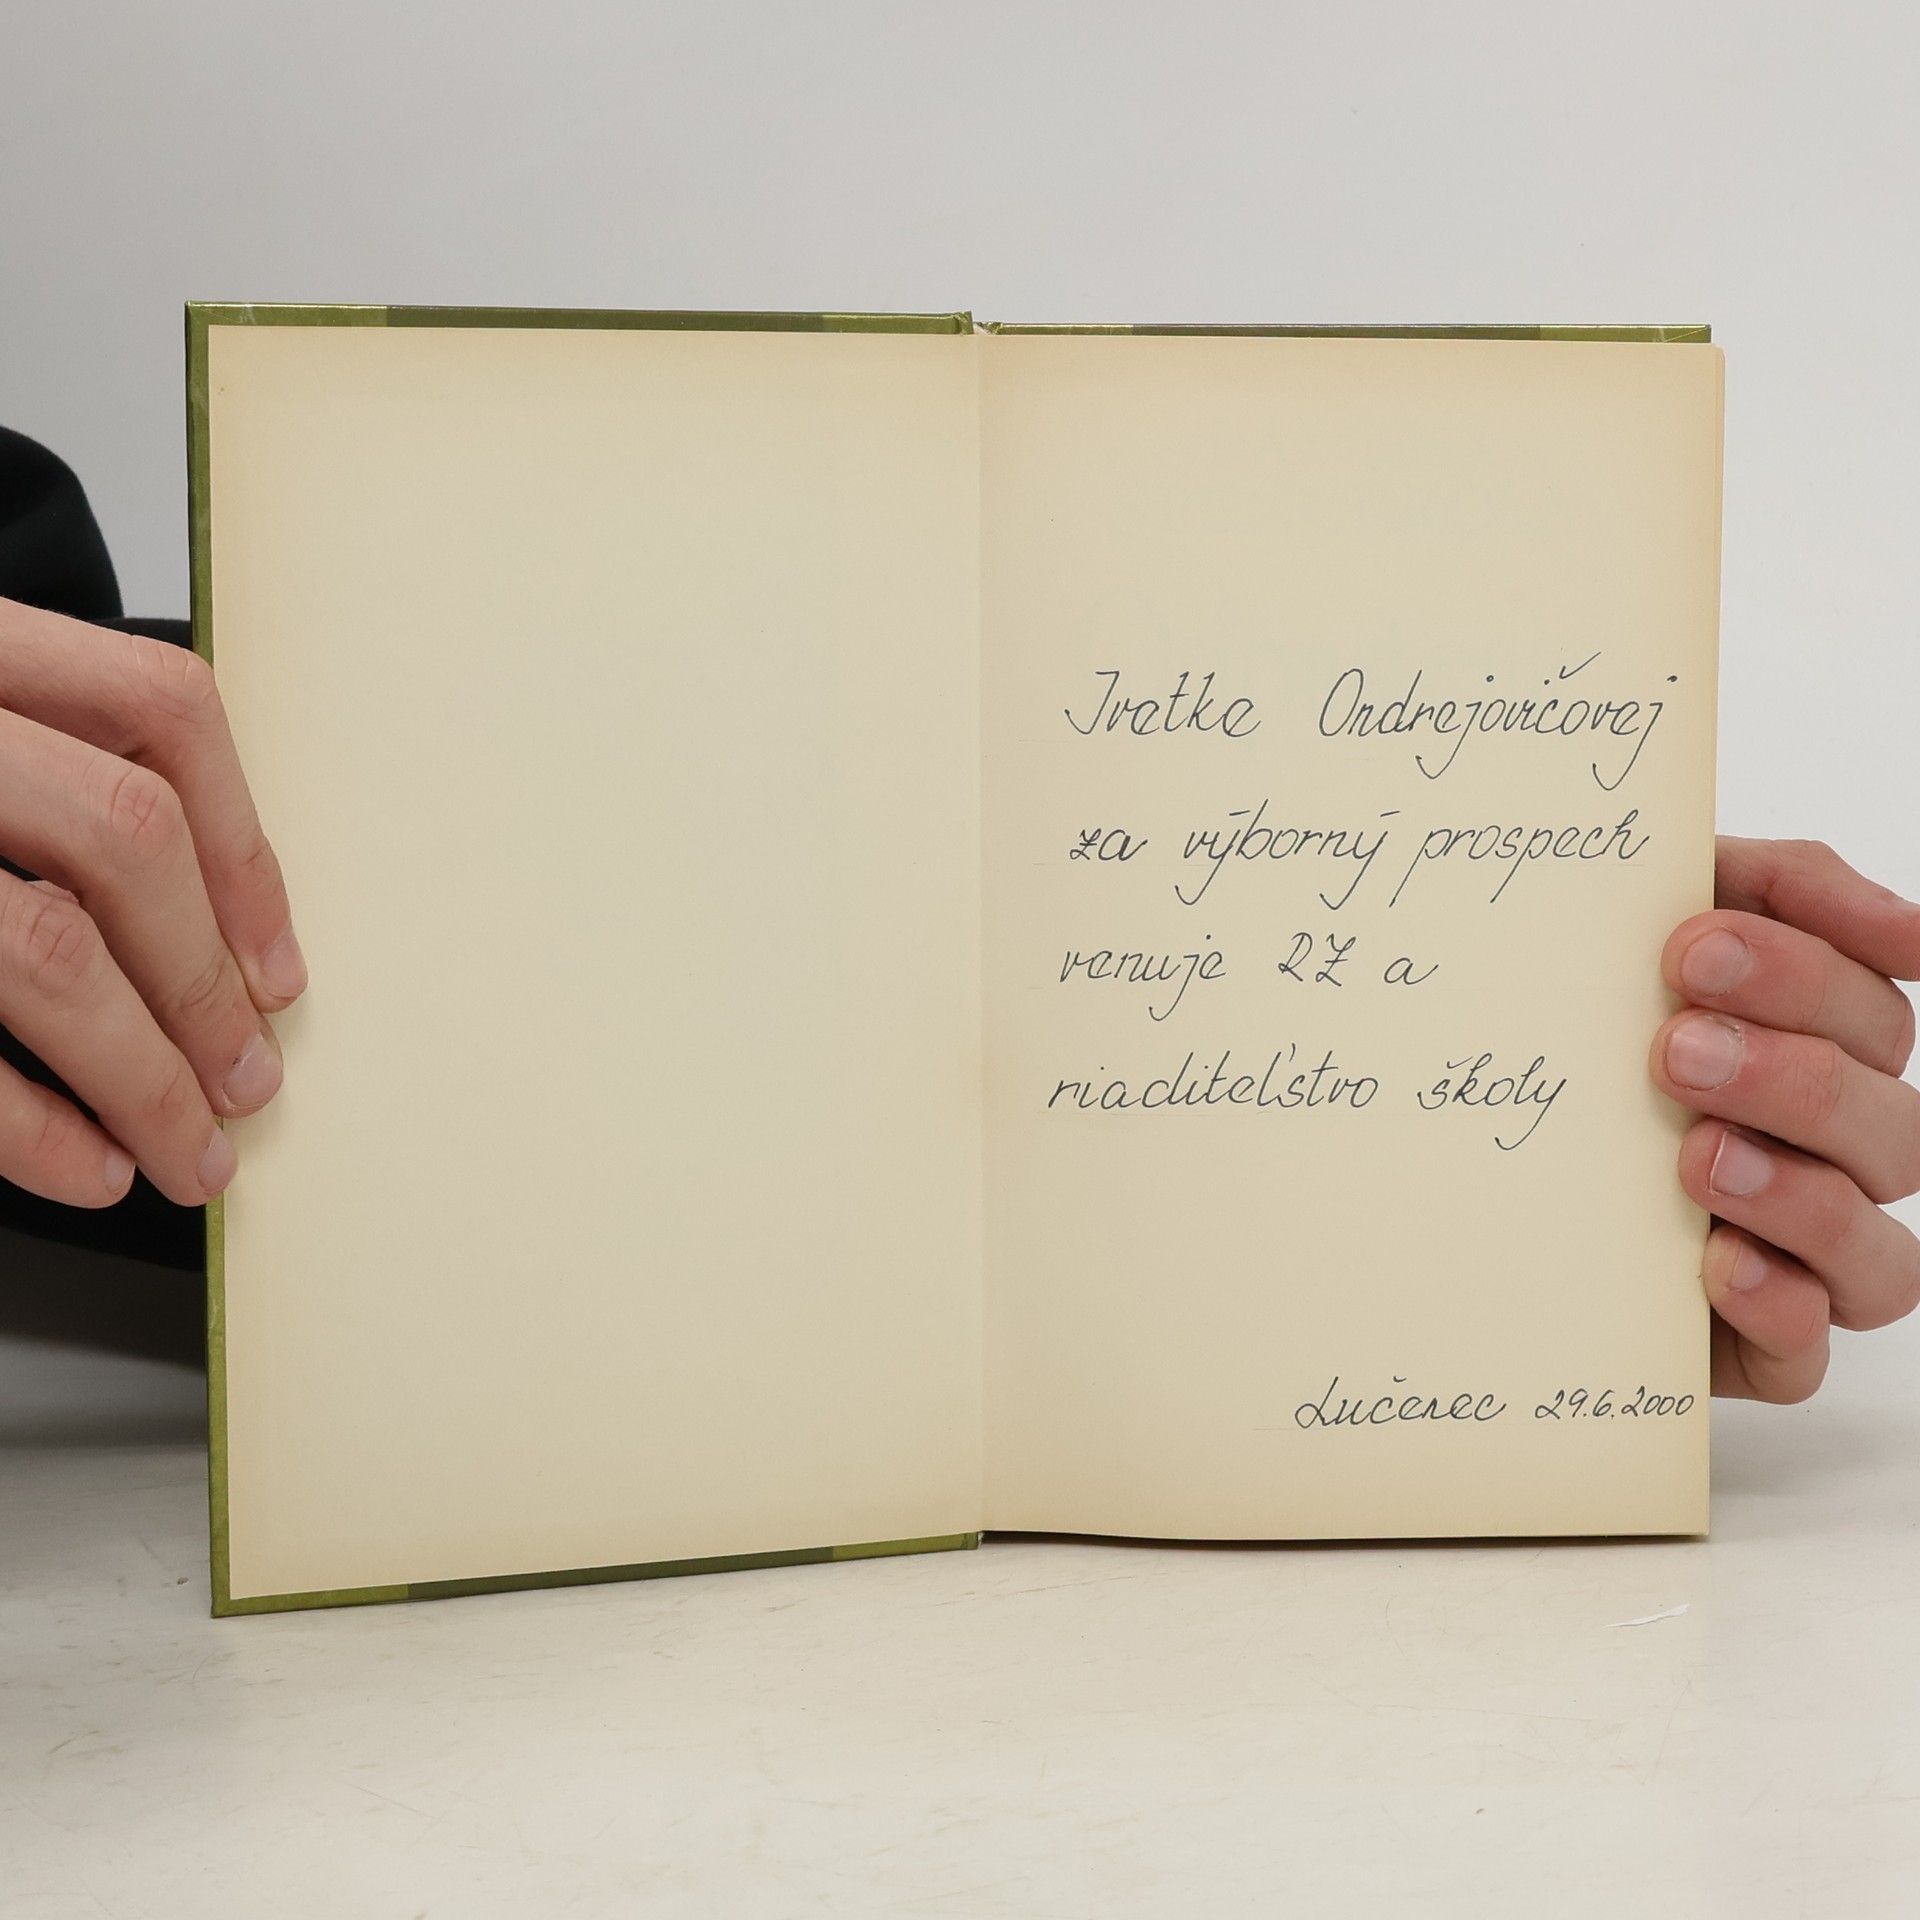 Ivetke Ondrejovičovej
za výborný prospech
venuje RZ a
riaditeľstvo školy
Lučenec 29.6.2000